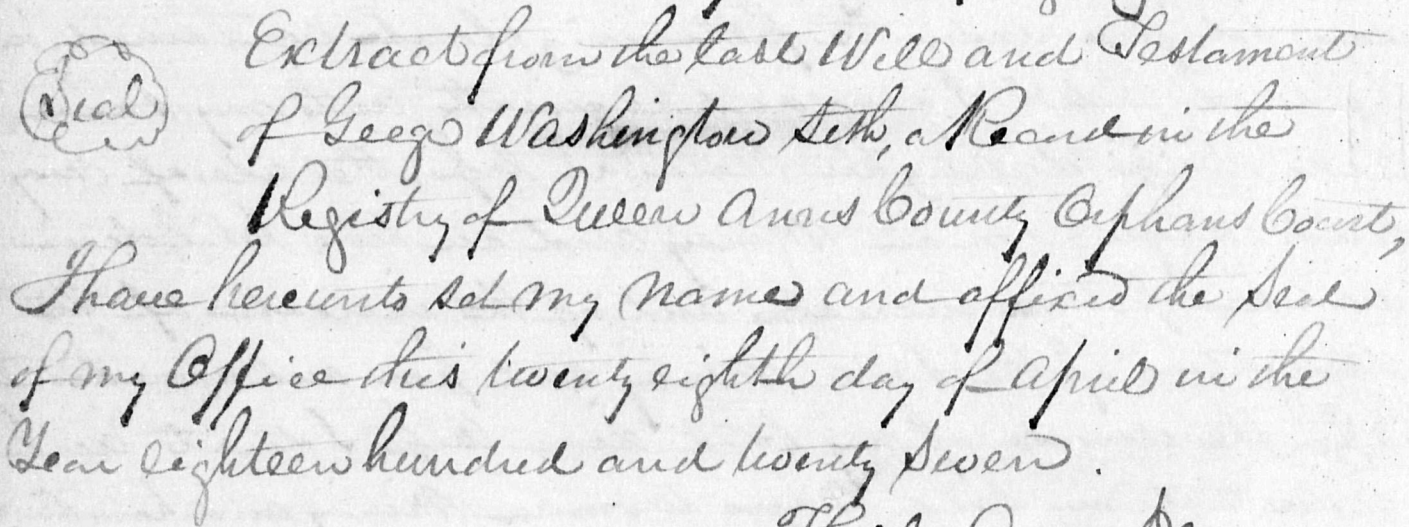 Extract from the last Will and Testament
Seal
of Geog Washington Seth, a Record in the
Registry of Queen Anns County Orphans Court,
I have hereunto set my name and affixed the Seal
of my Office this twenty eighth day of April in the
Year eighteen hundred and twenty Seven.